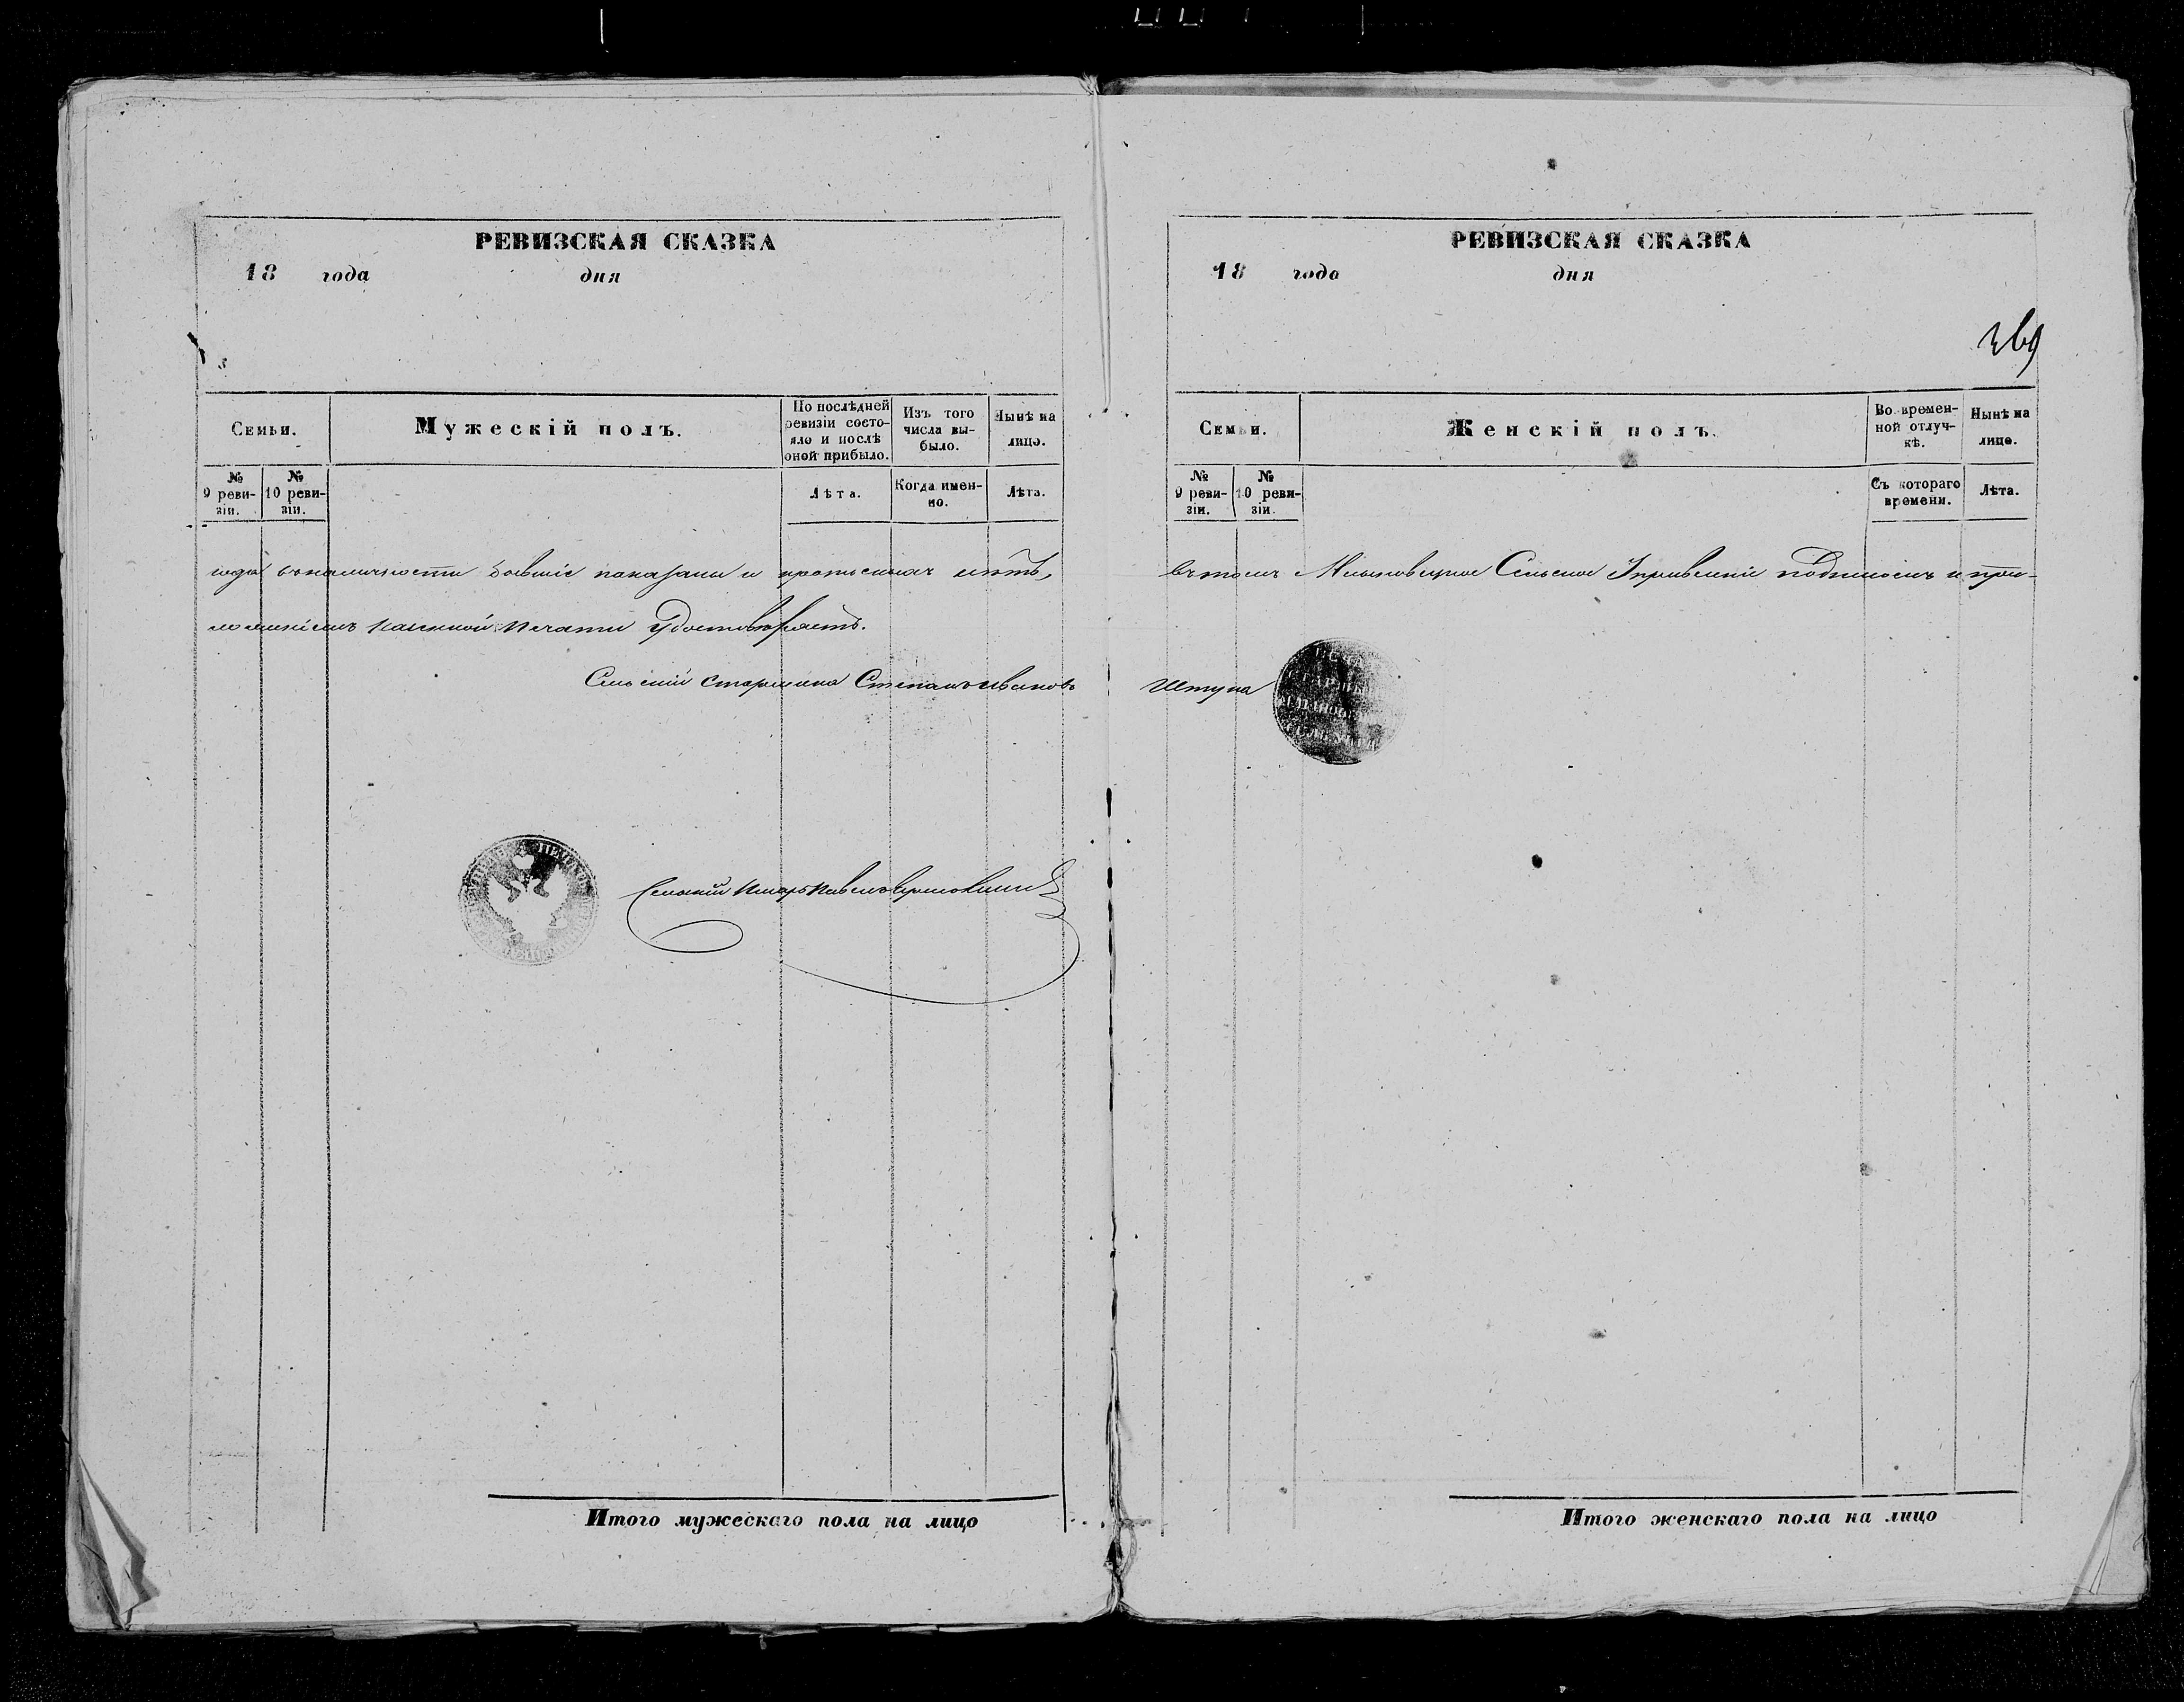 РЕВИЗСКАЯ СКАЗКА
18 года дня
Семьи.
Мужескій полъ.
По послѣдней ревизіи состояло и послѣ оной прибыло.
Изъ того числа выбыло.
Нынѣ на лицо.
№ 9 ревизіи.
№ 10 ревизіи.
Лѣта.
Когда именно.
Лѣта.
года въ наличности бывшіе показаны и прописныхъ нѣтъ,
ложеніемъ казенной печати удостовѣряетъ.
Сельскій старшина Степанъ Ивановъ
Сельскій писарь Павелъ
Итого мужескаго пола на лицо
РЕВИЗСКАЯ СКАЗКА
18 года дня
369
Семьи.
Женскій полъ.
Во временной отлучкѣ.
Нынѣ на лицо.
№ 9 ревизіи.
№ 10 ревизіи.
Съ котораго времени.
Лѣта.
въ томъ Сельское Управленіе подписомъ и при-
Штупа
Итого женскаго пола на лицо